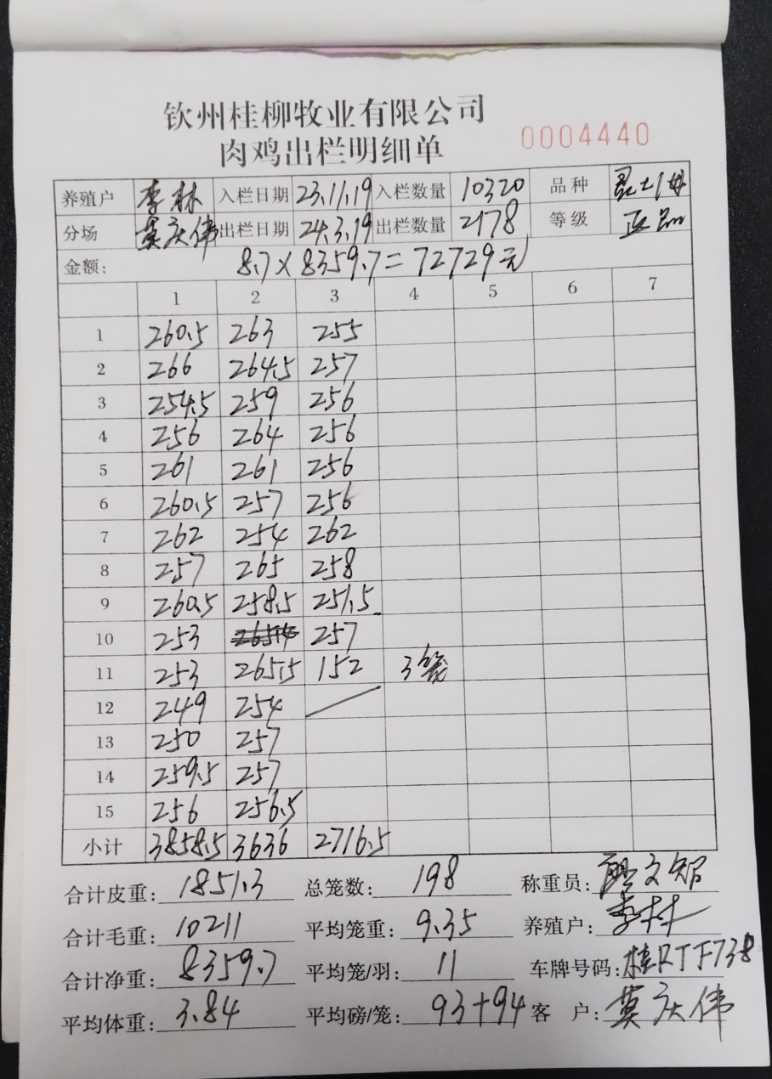 钦州桂柳牧业有限公司
肉鸡出栏明细单 0004440
养殖户 李林 入栏日期 23.11.19 入栏数量 10320 品种
分场 莫庆伟 出栏日期 24.3.19 出栏数量 2178 等级 正品
金额: 8.7×8359.7=72729元
1 2 3 4 5 6 7
1 260.5 263 255
2 266 264.5 257
3 254.5 259 256
4 256 264 256
5 261 261 256
6 260.5 257 256
7 262 254 262
8 257 265 258
9 260.5 258.5 251.5
10 253 257
11 253 265.5 152 3笼
12 249 254
13 250 257
14 259.5 257
15 256 256.5
小计 3858.5 3636 2716.5
合计皮重: 1851.3 总笼数: 198 称重员:
合计毛重: 10211 平均笼重: 9.35 养殖户: 李林
合计净重: 8359.7 平均笼/羽: 11 车牌号码: 桂RJF738
平均体重: 3.84 平均磅/笼: 93+94 客 户: 莫庆伟